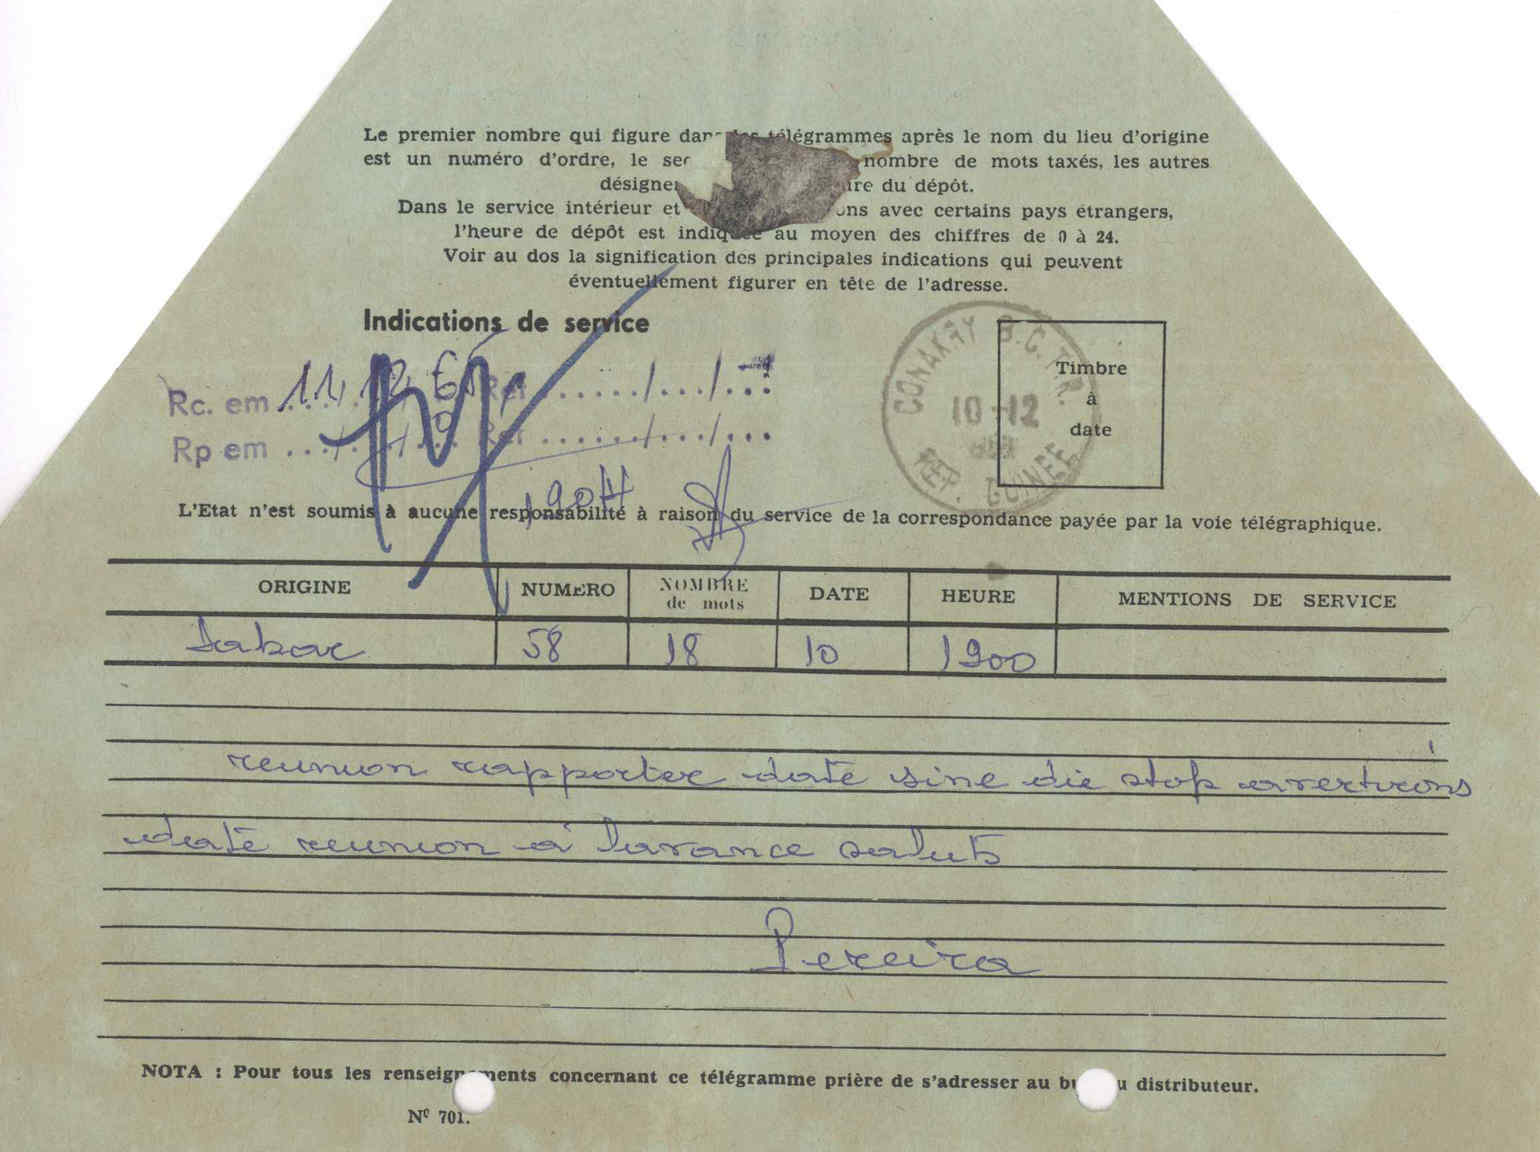 Le premier nombre qui figure dans les télégrammes après le nom du lieu d'origine
est un numéro d'ordre, le sec nombre de mots taxés, les autres
désigne ure du dépôt.
Dans le service intérieur et ons avec certains pays étrangers,
l'heure de dépôt est indiquée au moyen des chiffres de 0 à 24.
Voir au dos la signification des principales indications qui peuvent
éventuellement figurer en tête de l'adresse.
Indications de service
Rc. em 11/12/6 Ref ....../.../...
Rp em .../.../... Ref ....../.../...
CONAKRY
10-12
REP. GUINEE
Timbre
à
date
190H
L'Etat n'est soumis à aucune responsabilité à raison du service de la correspondance payée par la voie télégraphique.
ORIGINE NUMERO NOMBRE de mots DATE HEURE MENTIONS DE SERVICE
Dakar 58 18 10 1900
reunion rapporter date sine die stop avertirons
date reunion à lavance saluts
Pereira
NOTA : Pour tous les renseignements concernant ce télégramme prière de s'adresser au bu u distributeur.
Nº 701.